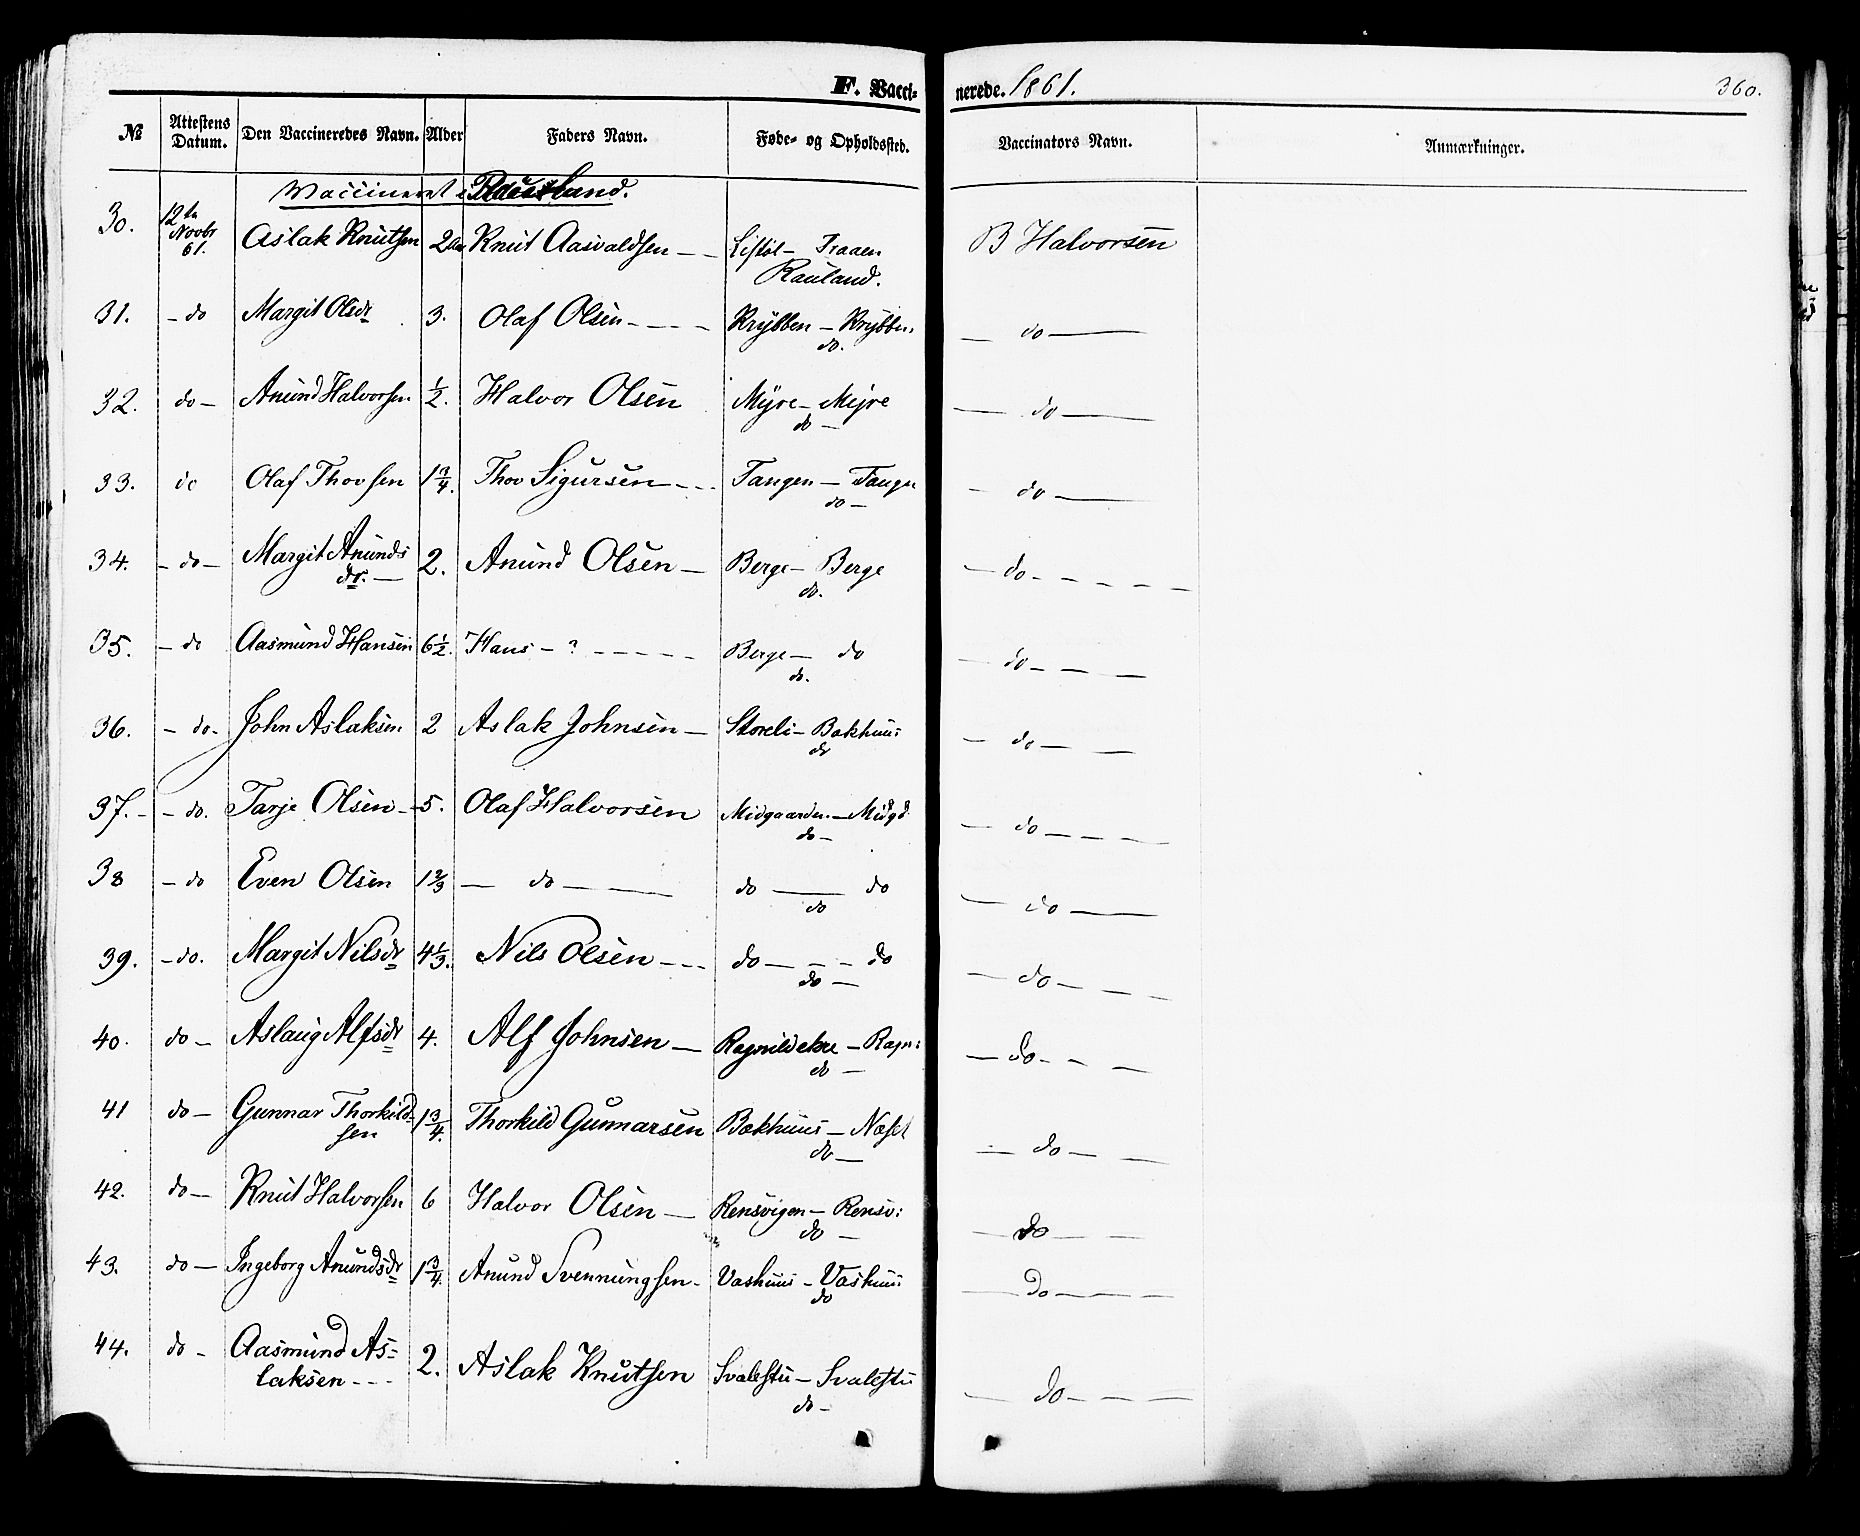 F. Vaccinerede. 1861. 360.
№ Attestens Datum. Den Vaccineredes Navn. Alder Faders Navn. Føde- og Opholdssted. Vaccinators Navn. Anmærkninger.
Vaccineret i
30. 12te Novbr 61. Aslak Knutsen 2 Aar Knut Aasvaldsen – – Traaen B Halvorsen
Rauland.
31. – do Margit Olsdr 3. Olaf Olsen – – – – Krybben – Krybben — do —
do.
32. do – Anund Halvorsen 1/2. Halvor Olsen Myre – Myre — do —
do –
33. do Olaf Thovsen 1 3/4. Thov Sigursen – – – Tangen – Tangen – do —
do –
34. – do – Margit Anunds 2. Anund Olsen – Berge – Berge – do – – – – –
dr. – do.
35. – do Aasmund Hansen 6 1/2. Hans – ? – – – – – Berge – do – do – – –
do.
36. – do – John Aslaksen 2 Aslak Johnsen – Storeli – Bakhuus – do – –
do
37. – – do. Tarje Olsen – 5. Olaf Halvorsen Midgaarden – Midgd – do – – – –
do –
38 – do Even Olsen 1 2/3 — do — — do — do — do —
do
39. – do. Margit Nilsdr 4 1/3. Nils Olsen – – – do – – – do – do – – – –
do –
40. do – Aslaug Alfsdr 4. Alf Johnsen – Ragnildekre – Ragn: – do – – –
do –
41 do – Gunnar Thorkild- 1 3/4. Thorkild Gunnarsen Bakhuus – Næset – do – – –
sen do –
42. do – Knut Halvorsen 6 Halvor Olsen – Rensvigen – Rensv: – do – –
do –
43. do – Ingeborg Anundsdr 1 3/4. Anund Svennungsen – Vashuus – Vashuus – Do – – –
do
44. do – Aasmund As= 2. Aslak Knutsen Svalestu – Svalestu – do – – – –
laksen – – – do –